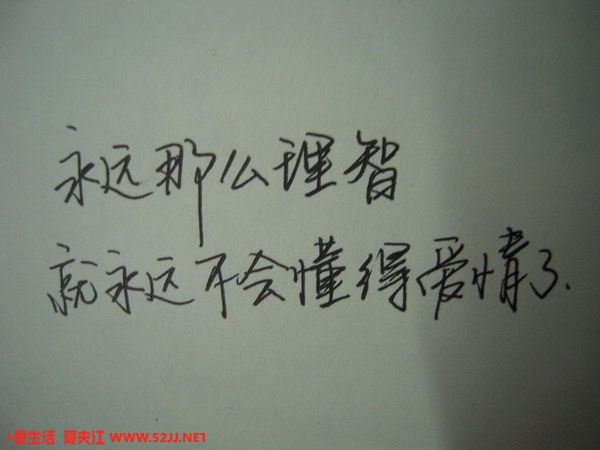 永远那么理智
就永远不会懂得爱情了.
爱生活 爱夹江 WWW.52JJ.NET